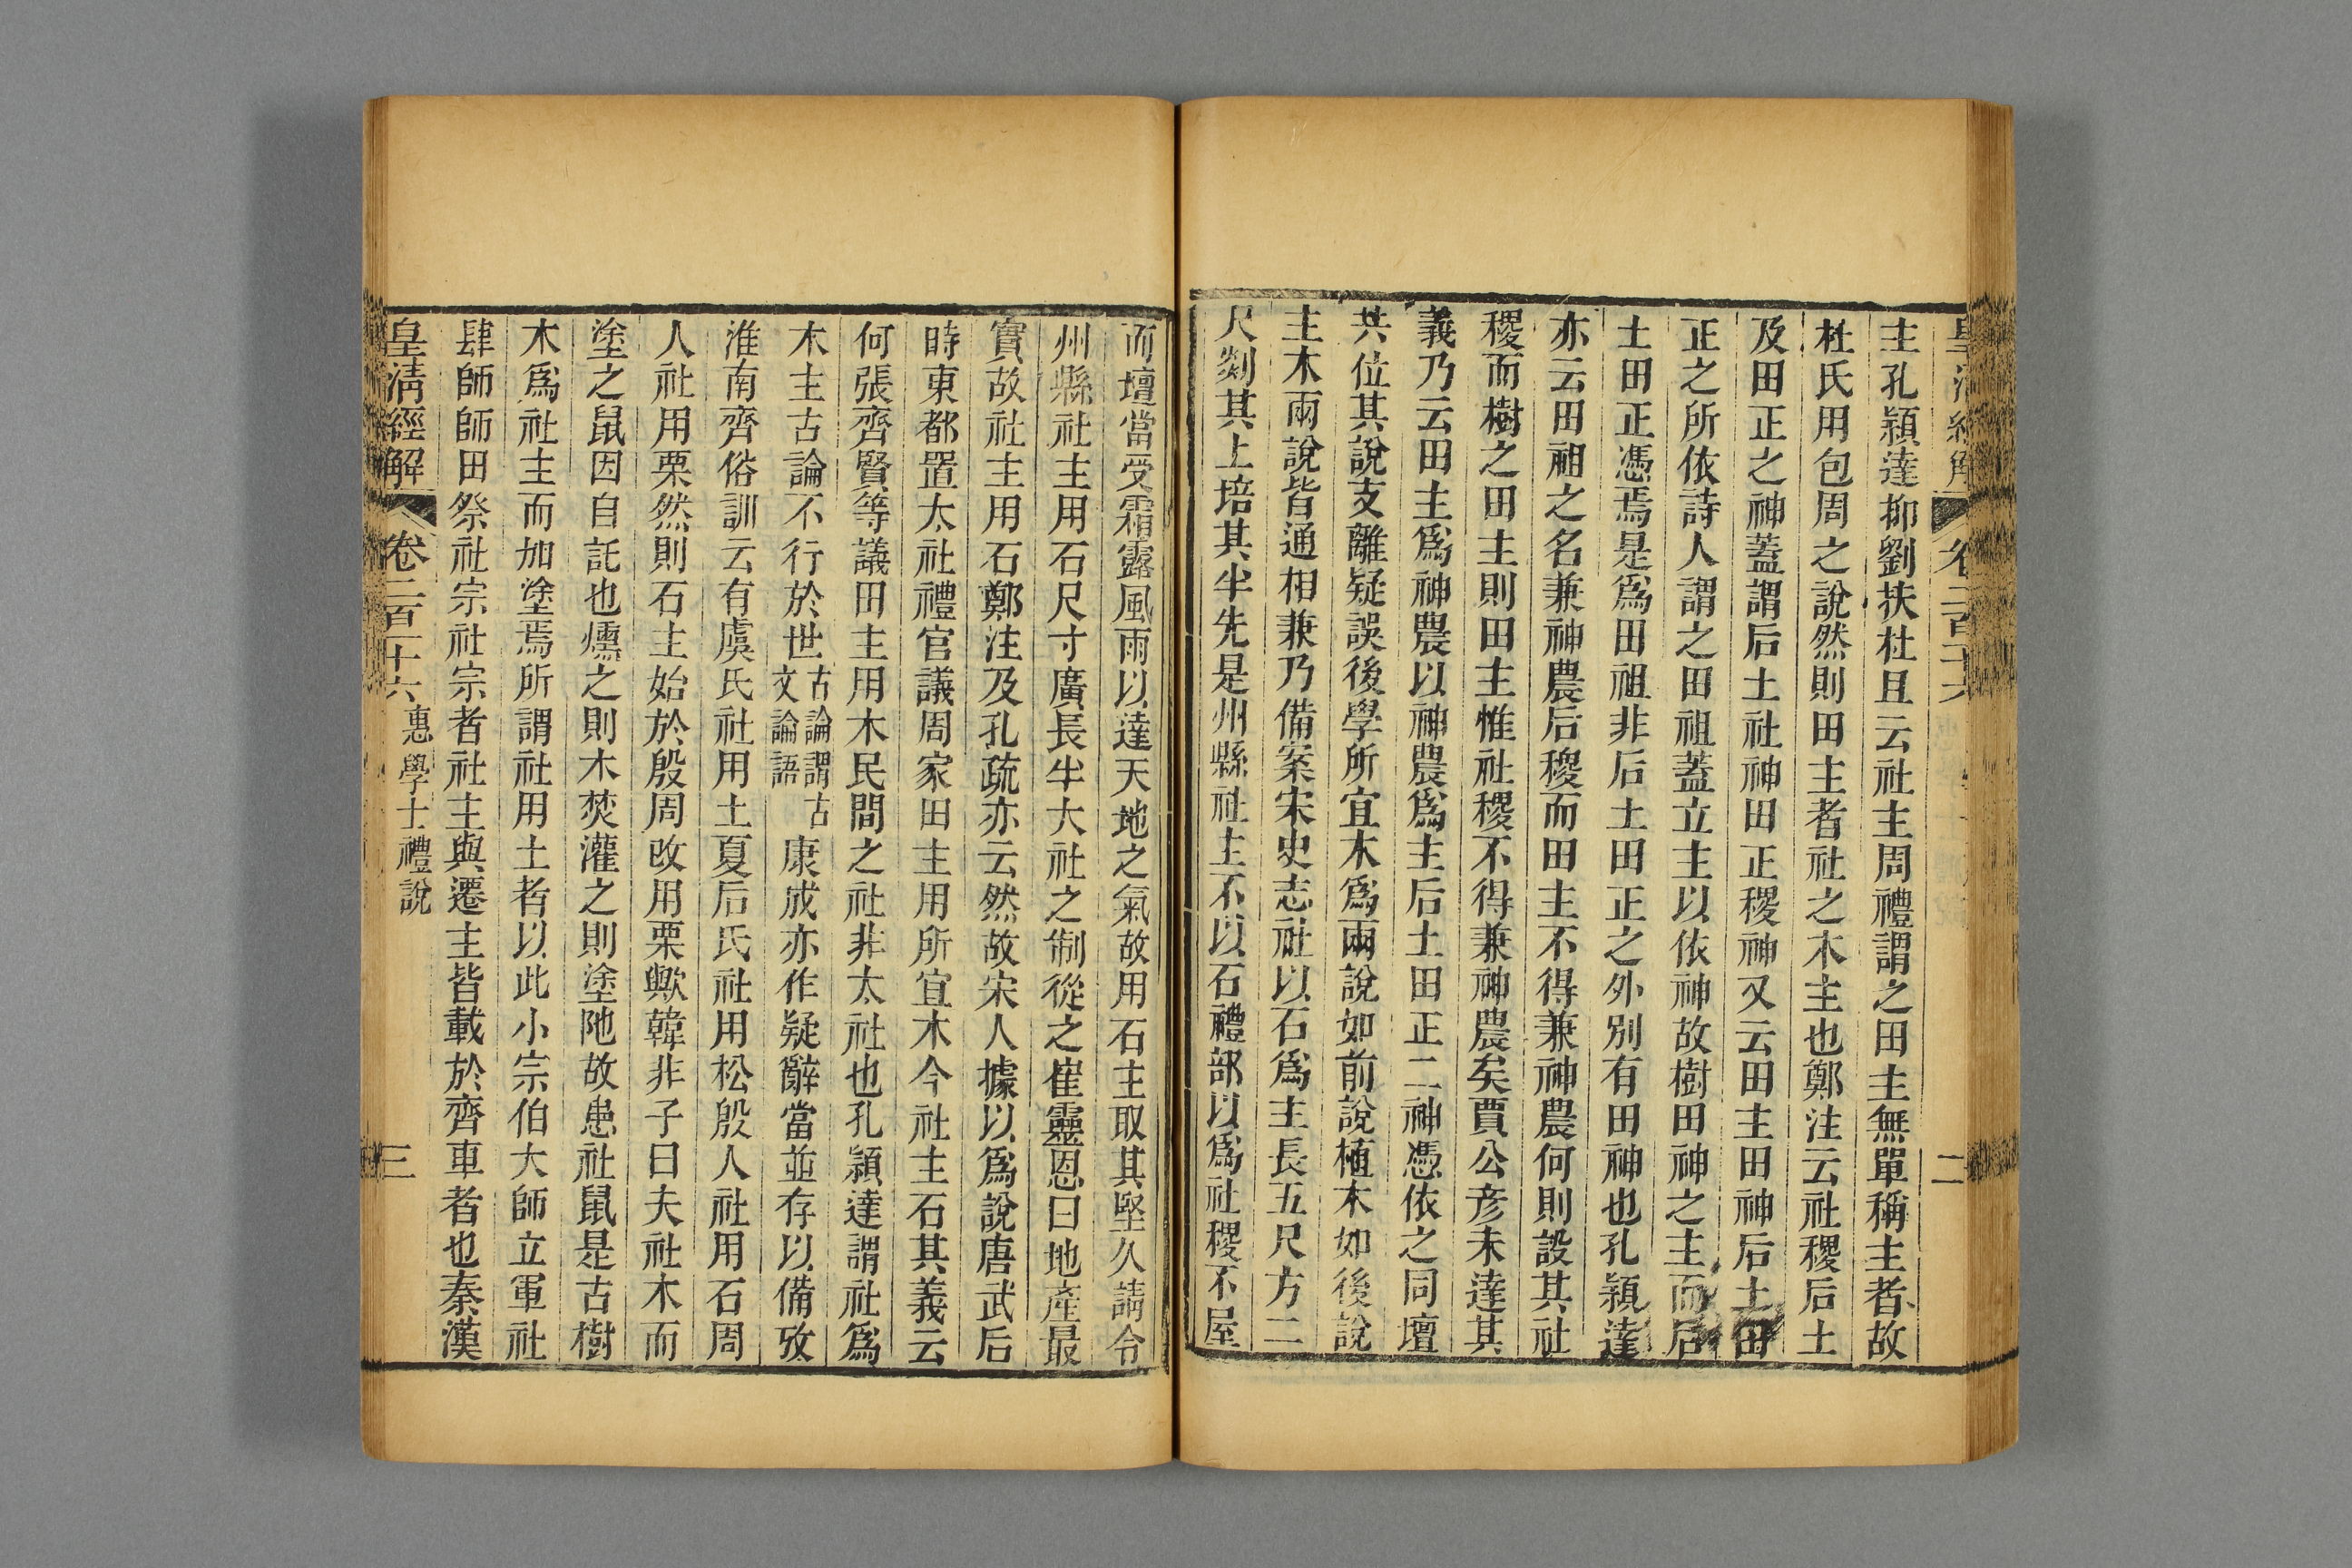 主孔穎達抑劉扶杜且云社主周禮謂之田主無單稱主者故
杜氏用包周之說然則田主者社之木主也鄭注云社稷后土
及田正之神蓋謂后土社神田正稷神又云田主田神后土田
正之所依詩人謂之田祖蓋立主以依神故樹田神之主而后
土田正憑焉是爲田祖非后土田正之外別有田神也孔穎達
亦云田祖之名兼神農后稷而田主不得兼神農何則設其社
稷而樹之田主則田主惟社稷不得兼神農矣賈公彥未達其
義乃云田主爲神農以神農爲主后土田正二神憑依之同壇
共位其說支離疑誤後學所宜木爲兩說如前說植木如後說
主木兩說皆通相兼乃備案宋史志社以石爲主長五尺方二
尺剡其上培其半先是州縣社主不以石禮部以爲社稷不屋
而壇當受霜露風雨以達天地之氣故用石主取其堅久請令
州縣社主用石尺寸廣長半大社之制從之崔靈恩曰地產最
實故社主用石鄭注及孔疏亦云然故宋人據以爲說唐武后
時東都置太社禮官議周家田主用所宜木今社主石其義云
何張齊賢等議田主用木民間之社非太社也孔穎達謂社爲
木主古論不行於世古論謂古文論語康成亦作疑辭當並存以備攷
淮南齊俗訓云有虞氏社用土夏后氏社用松殷人社用石周
人社用栗然則石主始於殷周改用栗歟韓非子曰夫社木而
塗之鼠因自託也燻之則木焚灌之則塗阤故患社鼠是古樹
木爲社主而加塗焉所謂社用土者以此小宗伯大師立軍社
肆師師田祭社宗社宗者社主與遷主皆載於齊車者也秦漢
皇清經解 卷二百十六 惠學士禮說 三